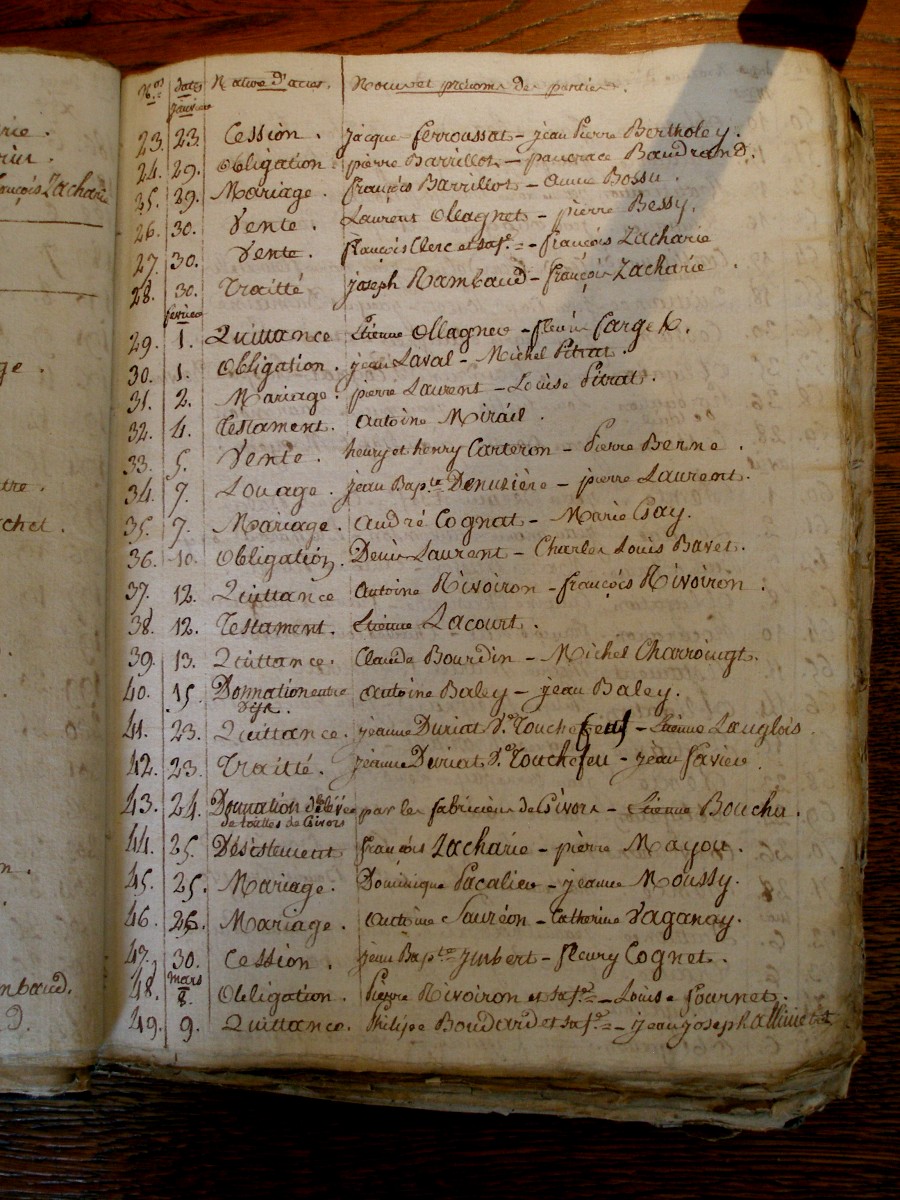 rie.
François Zacharie
ge.
tre.
chet.
n.
mbaud.
D.
Nos dates Nature d'actes. Noms et prénoms des parties.
janvier
23. 23. Cession. jacque ferroussat - jean Pierre Bertholey.
24. 29. Obligation. pierre Barrillot - pancrace Baudrand.
25. 29. Mariage. françois Barrillot - anne Bossu.
26. 30. Vente. Laurent Ollagnet - pierre Bessy.
27. 30. Vente. françois Clerc et sa fe - françois Zacharie
28. 30. Traitté joseph Rambaud - françois Zacharie.
fevrier
29. 1. Quittance Etienne Ollagnier - fleuri
30. 1. Obligation. jean Laval - Michel Pitrat.
31. 2. Mariage. pierre Laurent - Louise Pitrat.
32. 4. Testament. Antoine Mirail.
33. 5. Vente. henry et henry Carteron - Pierre Berne.
34. 7. Louage. jean Bapte Denuzière - pierre Laurent.
35. 7. Mariage. andré Cognat - Marie Gay.
36. 10. Obligation. Denis Laurent - Charles Louis Bavet.
37. 12. Quittance antoine Rivoiron - françois Rivoiron.
38. 12. Testament. Etienne Lacourt.
39. 13. Quittance. Claude Bourdin - Michel Charroingt.
40. 15. Donnation entre antoine Baley - jean Baley.
vifs.
41. 23. Quittance. jeanne Duriat De Touchefeu - Etienne Langlois
42. 23. Traitté. jeanne Duriat De Touchefeu - jean favier.
43. 24. Donnation par les fabriciens de Givors - Etienne Bouchu.
de toilles de Givors
44. 25. Désistement françois Zacharie - pierre Mayou.
45. 25. Mariage. Dominique Pacalier - jeanne Moussy.
46. 26. Mariage. antoine Sauréon - Catherine Vaganay.
47. 30. Cession. jean Bapte Imbert - fleury Cognet.
mars
48. 8. Obligation. Pierre Rivoiron et sa fe - Louise fournet.
49. 9. Quittance. Philipe Boudard et sa fe - jean joseph